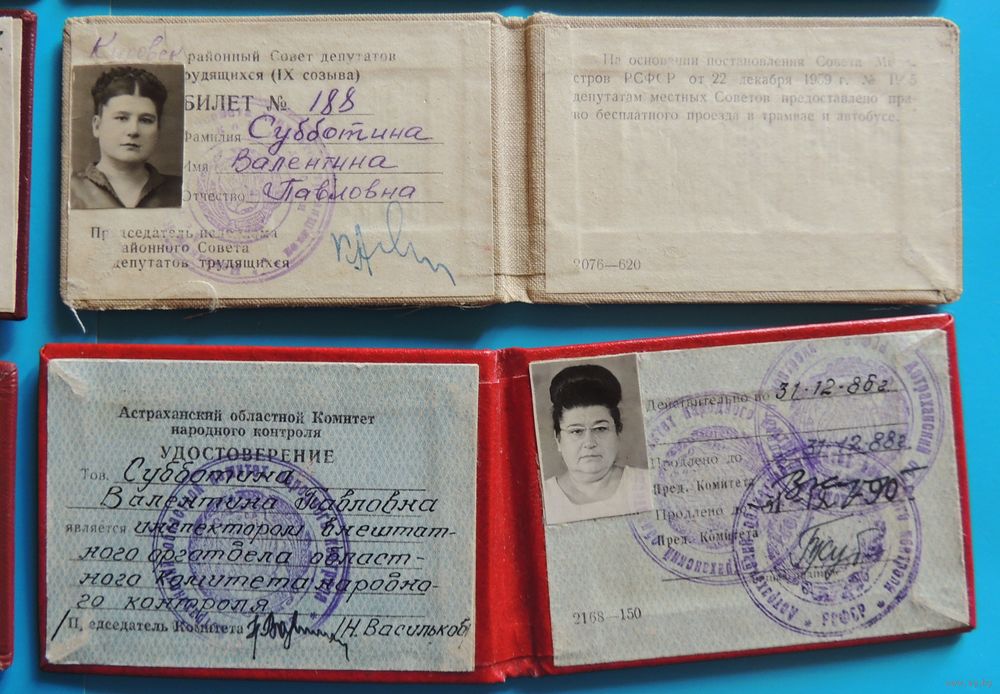 Кировск районный Совет депутатов
трудящихся (IX созыва)
БИЛЕТ № 188
Фамилия Субботина
Имя Валентина
Отчество Павловна
Председатель исполкома
районного Совета
депутатов трудящихся
На основании постановления Совета Ми
стров РСФСР от 22 декабря 1959 г. №
депутатам местных Советов предоставлено пра-
во бесплатного проезда в трамвае и автобусе.
2076—620
Астраханский областной Комитет
народного контроля
УДОСТОВЕРЕНИЕ
Тов. Субботина
Валентина Павловна
является инспектором внештат-
ного оргатдела област-
ного комитета народно-
го контроля
Председатель Комитета /Н. Васильков
Действительно по 31-12-86г
31.12.88г
Продлено до
Пред. Комитета
Продлено до
Пред. Комитета
2168—150